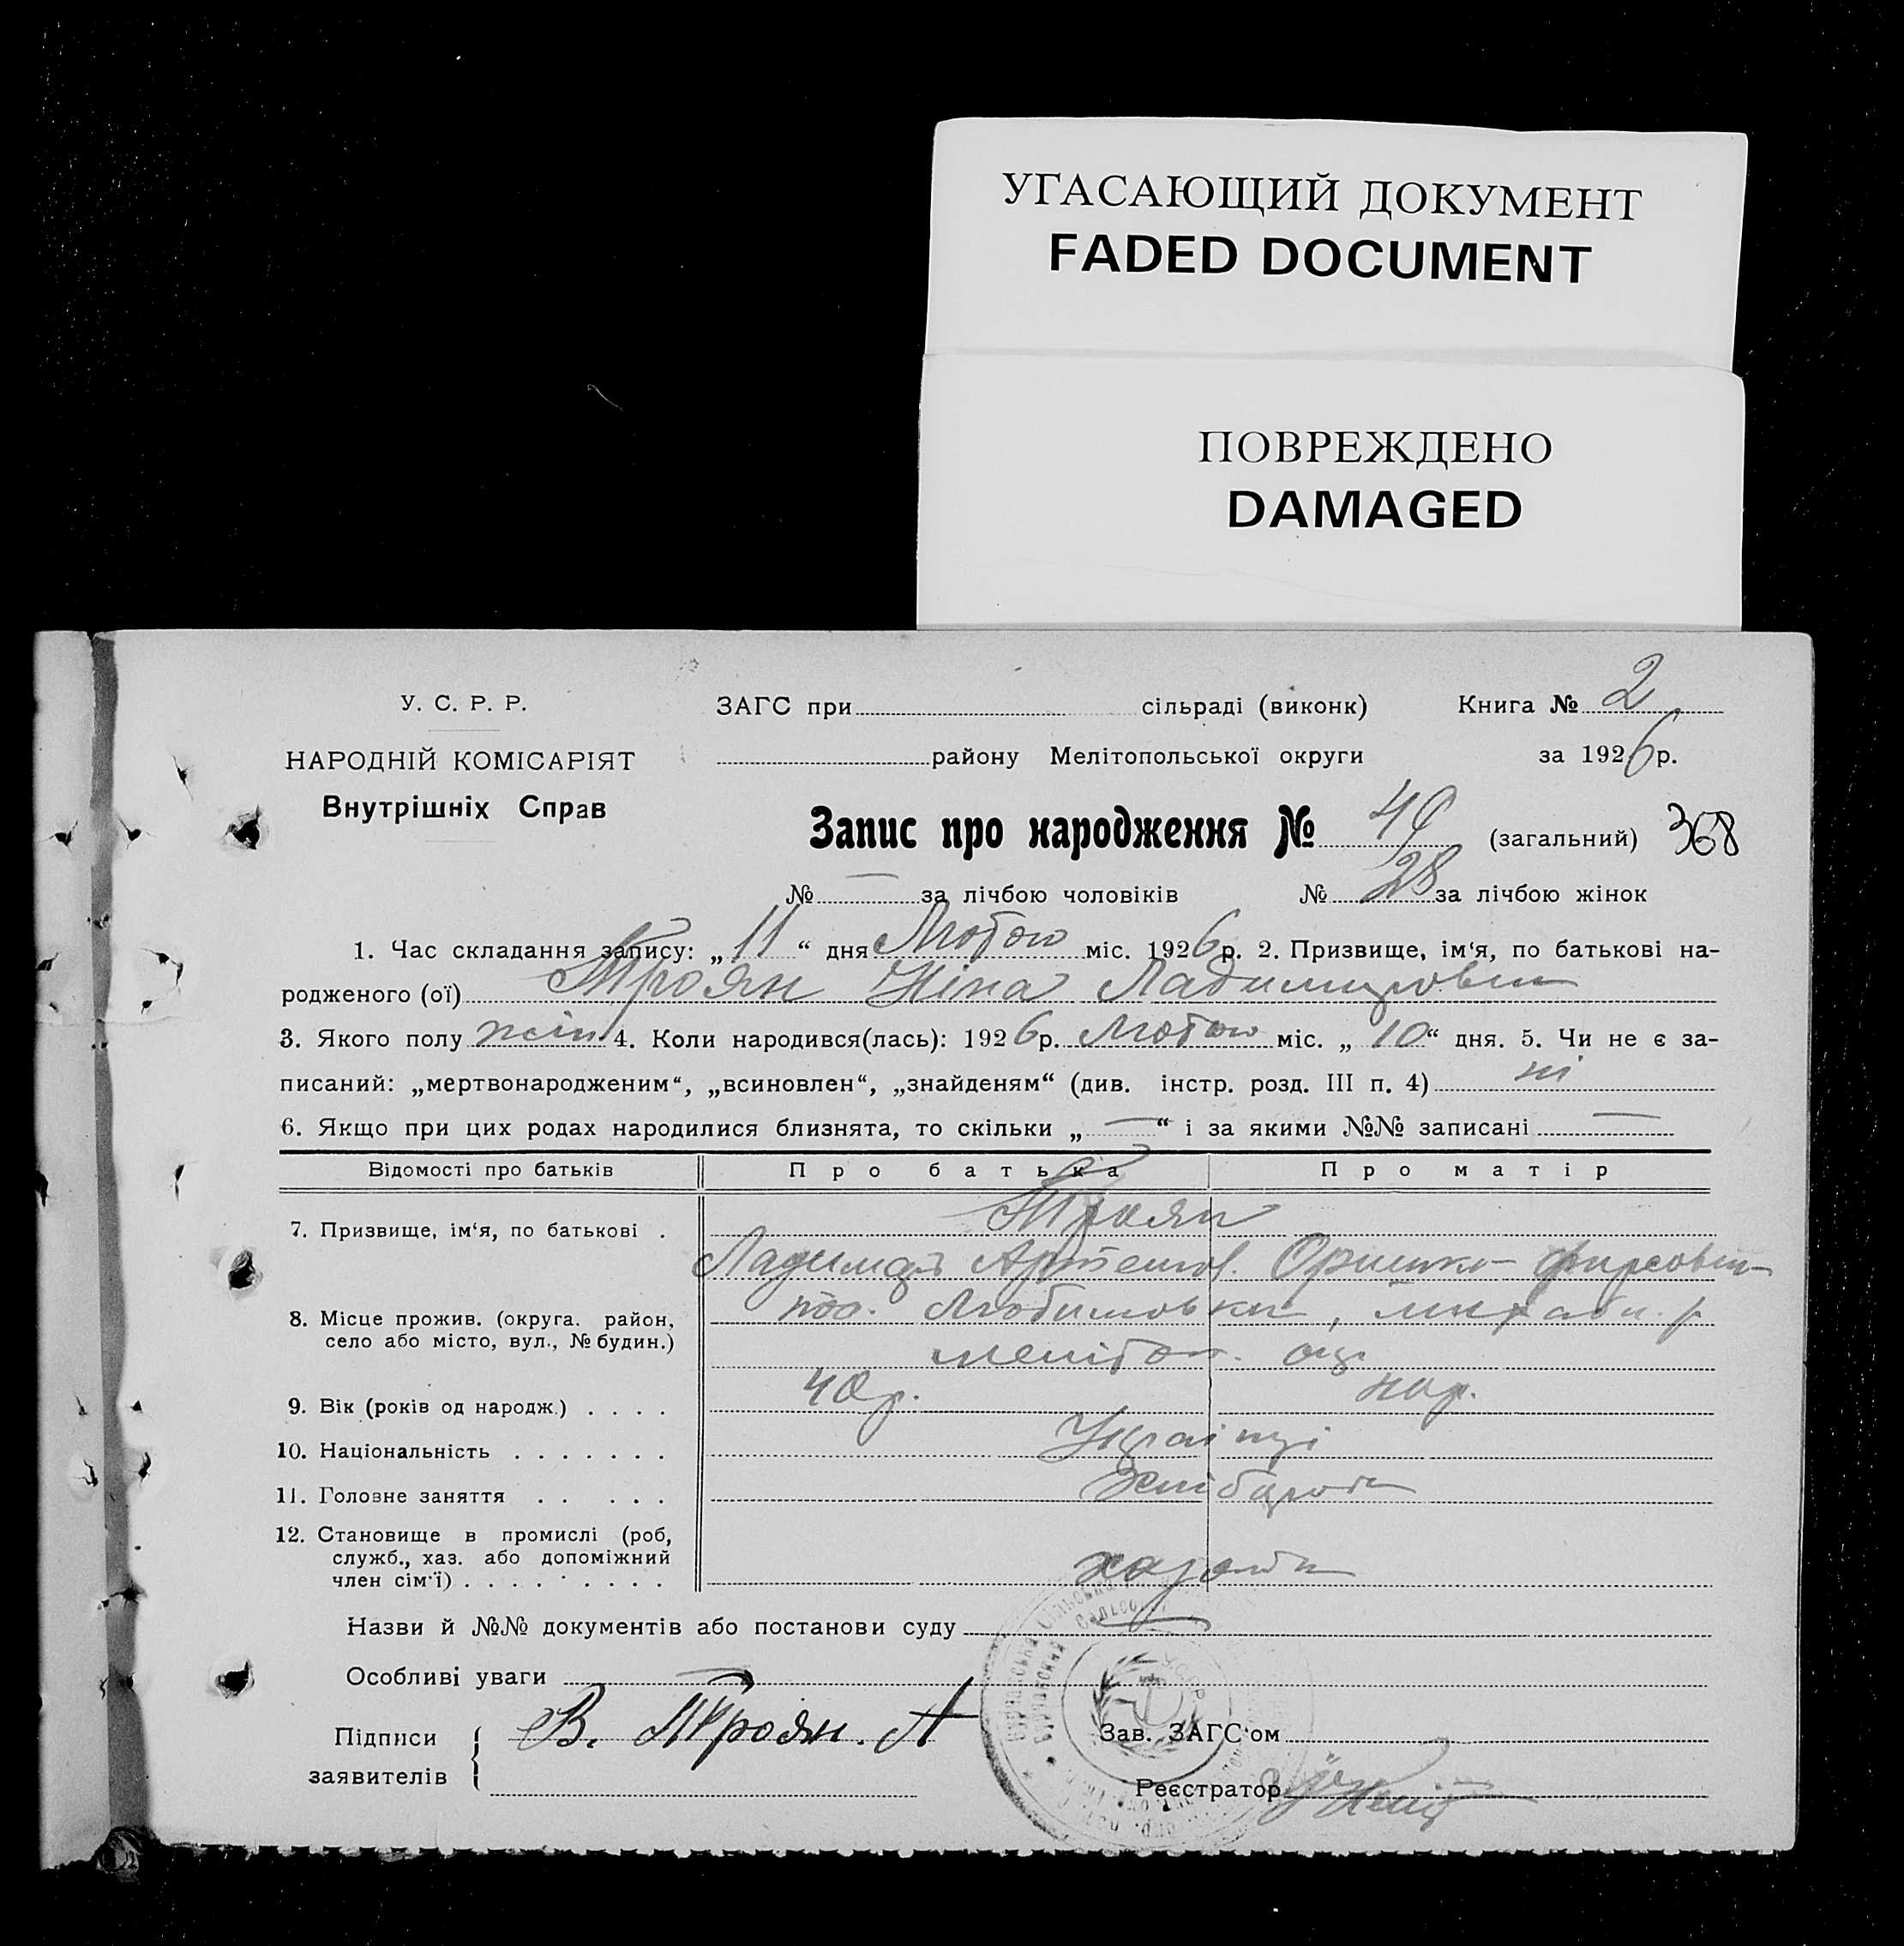 УГАСАЮЩИЙ ДОКУМЕНТ
FADED DOCUMENT
ПОВРЕЖДЕНО
DAMAGED
У. С. Р. Р.
НАРОДНІЙ КОМІСАРІЯТ
Внутрішніх Справ
ЗАГС при сільраді (виконк) Книга № 2
району Мелітопольської округи за 1926 р.
Запис про народження № 49 (загальний) 368
№ — за лічбою чоловіків № 28 за лічбою жінок
1. Час складання запису: „11“ дня Лютого міс. 1926 р. 2. Призвище, ім‘я, по батькові на-
родженого (ої) Троян Ніна Ладимировна
3. Якого полу жін. 4. Коли народився(лась): 1926 р. Лютого міс. „10“ дня. 5. Чи не є за-
писаний: „мертвонародженим“, „всиновлен“, „знайденям“ (див. інстр. розд. III п. 4) ні
6. Якщо при цих родах народилися близнята, то скільки „—“ і за якими №№ записані —
Відомості про батьків Про батька Про матір
7. Призвище, ім‘я, по батькові . Троян
Ладимір Артемов. Оришка Фирсовна
8. Місце прожив. (округа. район, село або місто, вул., № будин.) пос. Любимовка,
меліт. окр
9. Вік (років од народж.) . . . . 40 р.
10. Національність . . . . . . . Українці
11. Головне заняття . . . . . Хліборот
12. Становище в промислі (роб, служб., хаз. або допоміжний член сім‘ї) . . . . . . . . . хазяїн
Назви й №№ документів або постанови суду —
Особливі уваги —
Підписи заявителів В. Троян. А
Зав. ЗАГС‘ом
Реєстратор